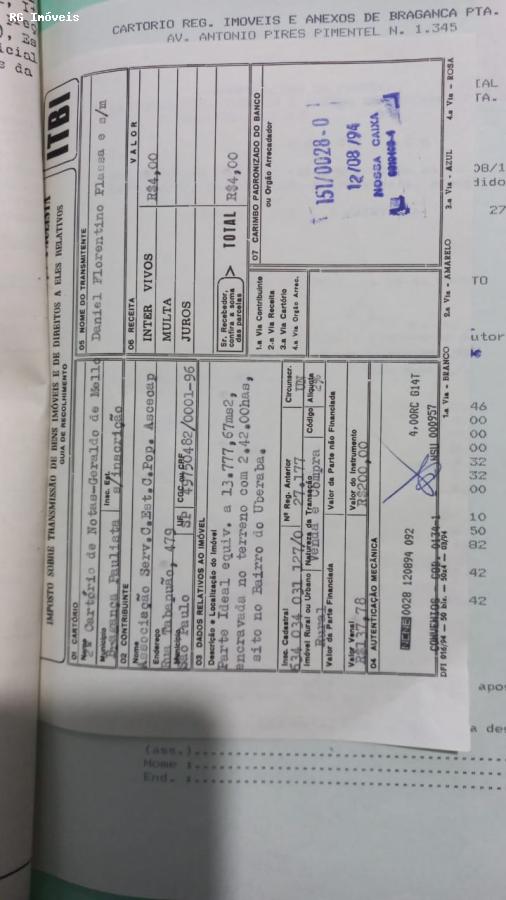 RG Imóveis
CARTORIO REG. IMOVEIS E ANEXOS DE BRAGANCA PTA.
AV. ANTONIO PIRES PIMENTEL N. 1.345
IMPOSTO SOBRE TRANSMISSÃO DE BENS IMÓVEIS E DE DIREITOS A ELES RELATIVOS
GUIA DE RECOLHIMENTO
ITBI
01 CARTÓRIO
2º Cartório de Notas-Geraldo de Mello
Município
Insc. Est.
Bragança Paulista s/inscrição
02 CONTRIBUINTE
Nome
Associação Serv.C.Est.C.Pop. Ascecap
Endereço
479
Município
UF
CGC ou CPF
São Paulo SP 49750482/0001-96
03 DADOS RELATIVOS AO IMÓVEL
Descrição e Localização do Imóvel
Parte Ideal equiv. a 13.777,67ms2,
encravada no terreno com 2.42.00has,
sito no Bairro do Uberaba.
Insc. Cadastral
Nº Reg. Anterior
Circunscr.
634 034 031 127/0 27.177
Imóvel Rural ou Urbano
Natureza da Transação
Código Alíquota
Rural Venda e Compra 2%
Valor da Parte Financiada
Valor da Parte não Financiada
Valor Venal
Valor do Instrumento
R$137,78 R$200,00
04 AUTENTICAÇÃO MECÂNICA
NCNB 0028 120894 092 4.00RC G14T
CONVENIOS - COD. 0134-1
000957
DFI 016/94 — 50 bls. — 50x4 — 03/94
1.a Via - BRANCO
2.a Via - AMARELO
3.a Via - AZUL
4.a Via - ROSA
05 NOME DO TRANSMITENTE
Daniel Florentino Flassa e s/m
06 RECEITA
VALOR
INTER VIVOS R$4,00
MULTA
JUROS
Sr. Recebedor,
confira a soma
das parcelas
TOTAL R$4,00
1.a Via Contribuinte
2.a Via Receita
3.a Via Cartório
4.a Via Orgão Arrec.
07 CARIMBO PADRONIZADO DO BANCO
ou Orgão Arrecadador
151/0028-0
12/08/94
NOSSA CAIXA
TAL
TA.
27
TO
utor
46
00
00
00
32
32
00
10
50
82
42
42
apos
a de
(ass.)
Nome :
End. :